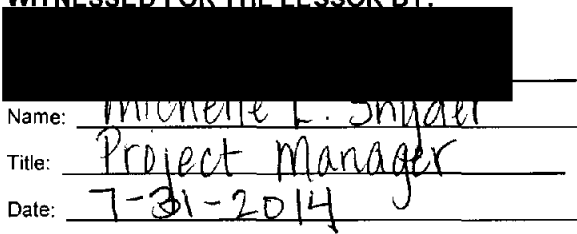 WITNESSED FOR THE LESSOR BY:
Name: Michelle L. Snyder
Title: Project Manager
Date: 7-31-2014